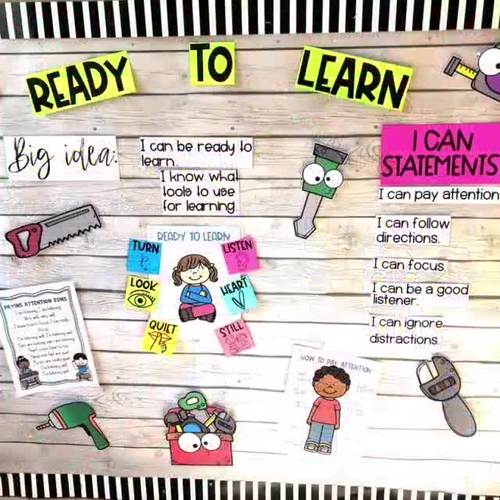 READY TO LEARN
Big idea:
I can be ready to
learn.
I know what
tools to use
for learning.
I CAN
STATEMENTS
I can pay attention
I can follow
directions.
I can focus.
I can be a good
listener.
I can ignore
distractions.
READY TO LEARN
TURN
LISTEN
LOOK
HEART
QUILT
STILL
PAYING ATTENTION SONG
HOW TO PAY ATTENTION